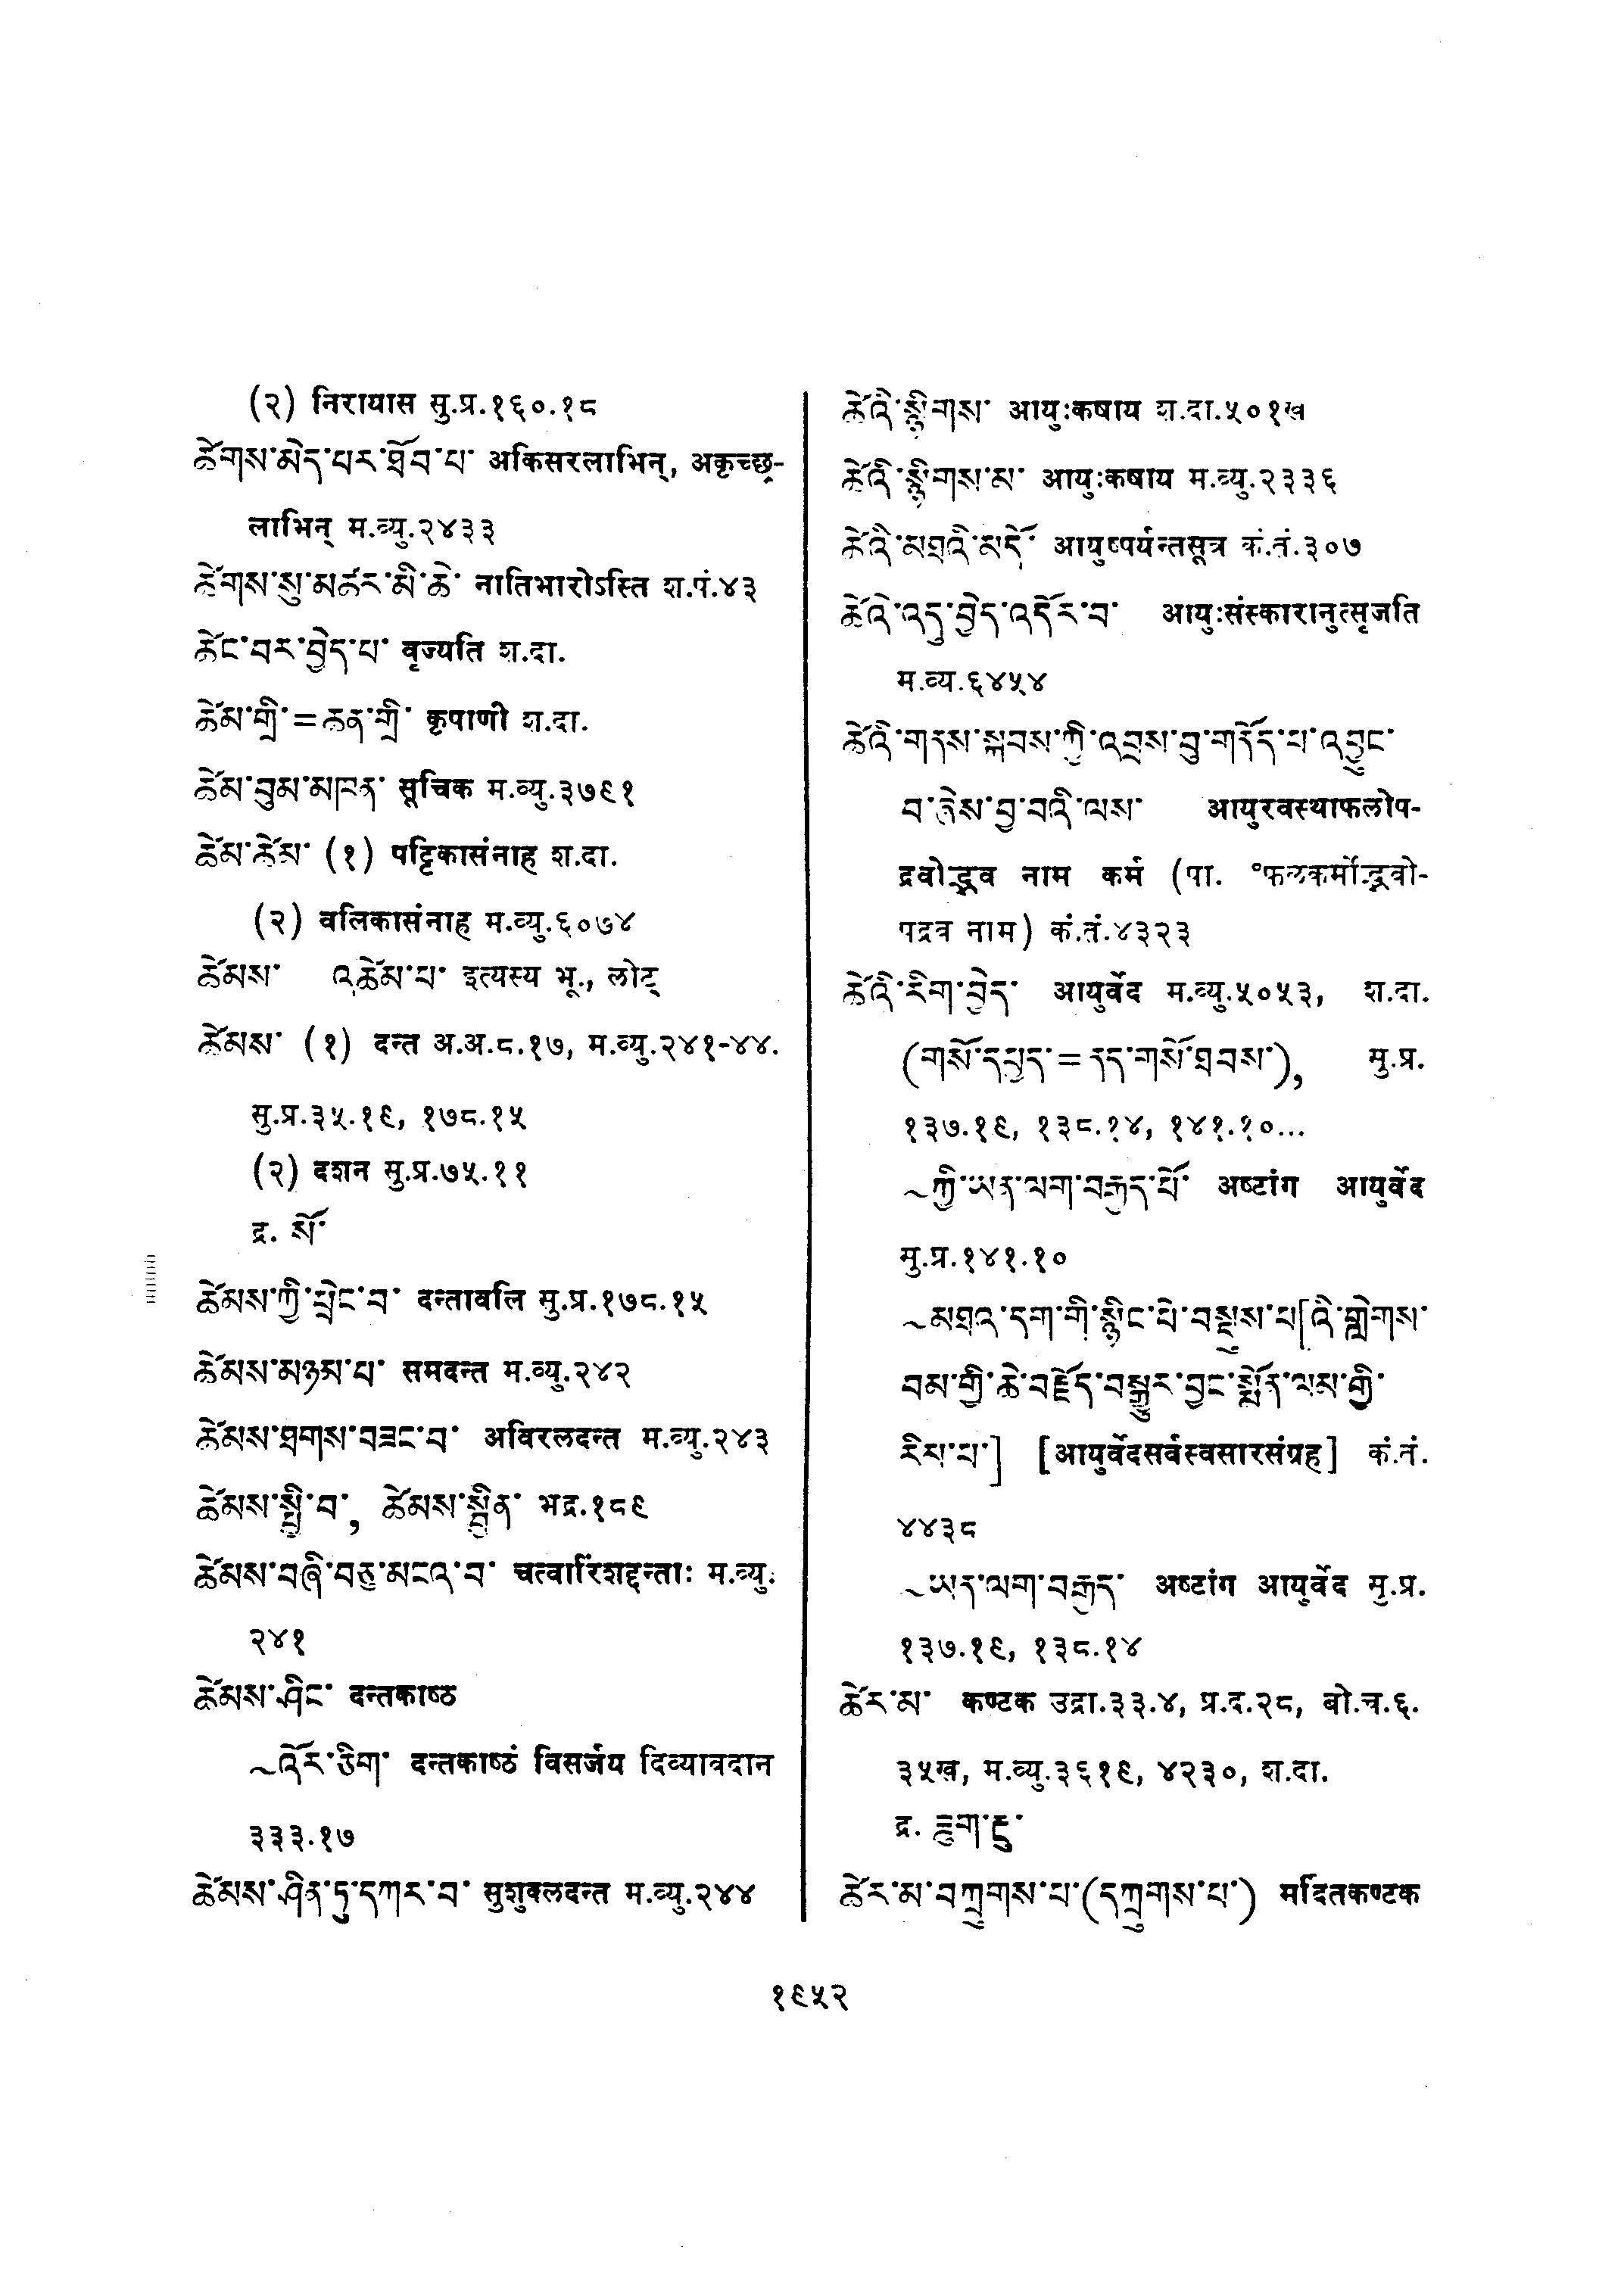 (२) निरायास सु.प्र.१६०.१८
ཚེགས་མེད་པར་ཐོབ་པ་ अकिसरलाभिन्, अकृच्छ्-
लाभिन् म.व्यु.२४३३
ཚེགས་སུ་མཚར་མི་ཆེ་ नातिभारोऽस्ति श.पं.४३
ཚེང་བར་བྱེད་པ་ वृज्यति श.दा.
ཚེམ་གྲི་=ཚན་གྲི་ कृपाणी श.दा.
ཚེམ་བུམ་མཁན་ सूचिक म.व्यु.३७९१
ཚེམ་ཚེམ་ (१) पट्टिकासंनाह श.दा.
(२) वलिकासंनाह म.व्यु.६०७४
ཚེམས་ འཚེམ་པ་ इत्यस्य भू., लोट्
ཚེམས་ (१) दन्त अ.अ.८.१७, म.व्यु.२४१-४४.
सु.प्र.३५.१९, १७८.१५
(२) दशन सु.प्र.७५.११
द्र. སོ་
ཚེམས་ཀྱི་ཕྲེང་བ་ दन्तावलि सु.प्र.१७८.१५
ཚེམས་མཉམ་པ་ समदन्त म.व्यु.२४२
ཚེམས་ཐགས་བཟང་བ་ अविरलदन्त म.व्यु.२४३
ཚེམས་སྤྲི་བ་, ཚེམས་སྤྲིན་ भद्र.१८९
ཚེམས་བཞི་བཅུ་མངའ་བ་ चत्वारिंशद्दन्ताः म.व्यु.
२४१
ཚེམས་ཤིང་ दन्तकाष्ठ
~འོར་ཅིག་ दन्तकाष्ठं विसर्जय दिव्यावदान
३३३.१७
ཚེམས་ཤིན་ཏུ་དཀར་བ་ सुशुक्लदन्त म.व्यु.२४४
ཚེའི་སྙིགས་ आयुःकषाय श.दा.५०१ख
ཚེའི་སྙིགས་མ་ आयुःकषाय म.व्यु.२३३६
ཚེའི་མཐའི་མདོ་ आयुष्पर्यन्तसूत्र कं.तं.३०७
ཚེའེ་འདུ་བྱེད་འདོར་བ་ आयुःसंस्कारानुत्सृजति
म.व्य.६४५४
ཚེའི་གནས་སྐབས་ཀྱི་འབྲས་བུ་གནོད་པ་འབྱུང་
བ་ཞེས་བྱ་བའི་ལས་ आयुरवस्थाफलोप-
द्रवोद्भव नाम कर्म (पा. °फलकर्मोद्भवो-
पद्रव नाम) कं.तं.४३२३
ཚེའི་རིག་བྱེད་ आयुर्वेद म.व्यु.५०५३, श.दा.
(གསོ་དཔྱད་=ནད་གསོ་ཐབས་), सु.प्र.
१३७.१९, १३८.१४, १४१.१०...
~ཀྱི་ཡན་ལག་བརྒྱད་པོ་ अष्टांग आयुर्वेद
सु.प्र.१४१.१०
~མཐའ་དག་གི་སྙིང་པེ་བསྡུས་པ[འི་གླེགས་
བམ་གྱི་ཆེ་བརྗོད་བསྒྱུར་བྱང་སྨོན་ལམ་གྱི་
རིས་པ་] [आयुर्वेदसर्वस्वसारसंग्रह] कं.तं.
४४३८
~ཡན་ལག་བརྒྱད་ अष्टांग आयुर्वेद सु.प्र.
१३७.१९, १३८.१४
ཚེར་མ་ कण्टक उद्रा.३३.४, प्र.द.२८, बो.च.६.
३५ख, म.व्यु.३६१९, ४२३०, श.दा.
द्र. ཟུག་རྔུ་
ཚེར་མ་བཀྲུགས་པ་(དཀྲུགས་པ་) मर्दितकण्टक
१९५२